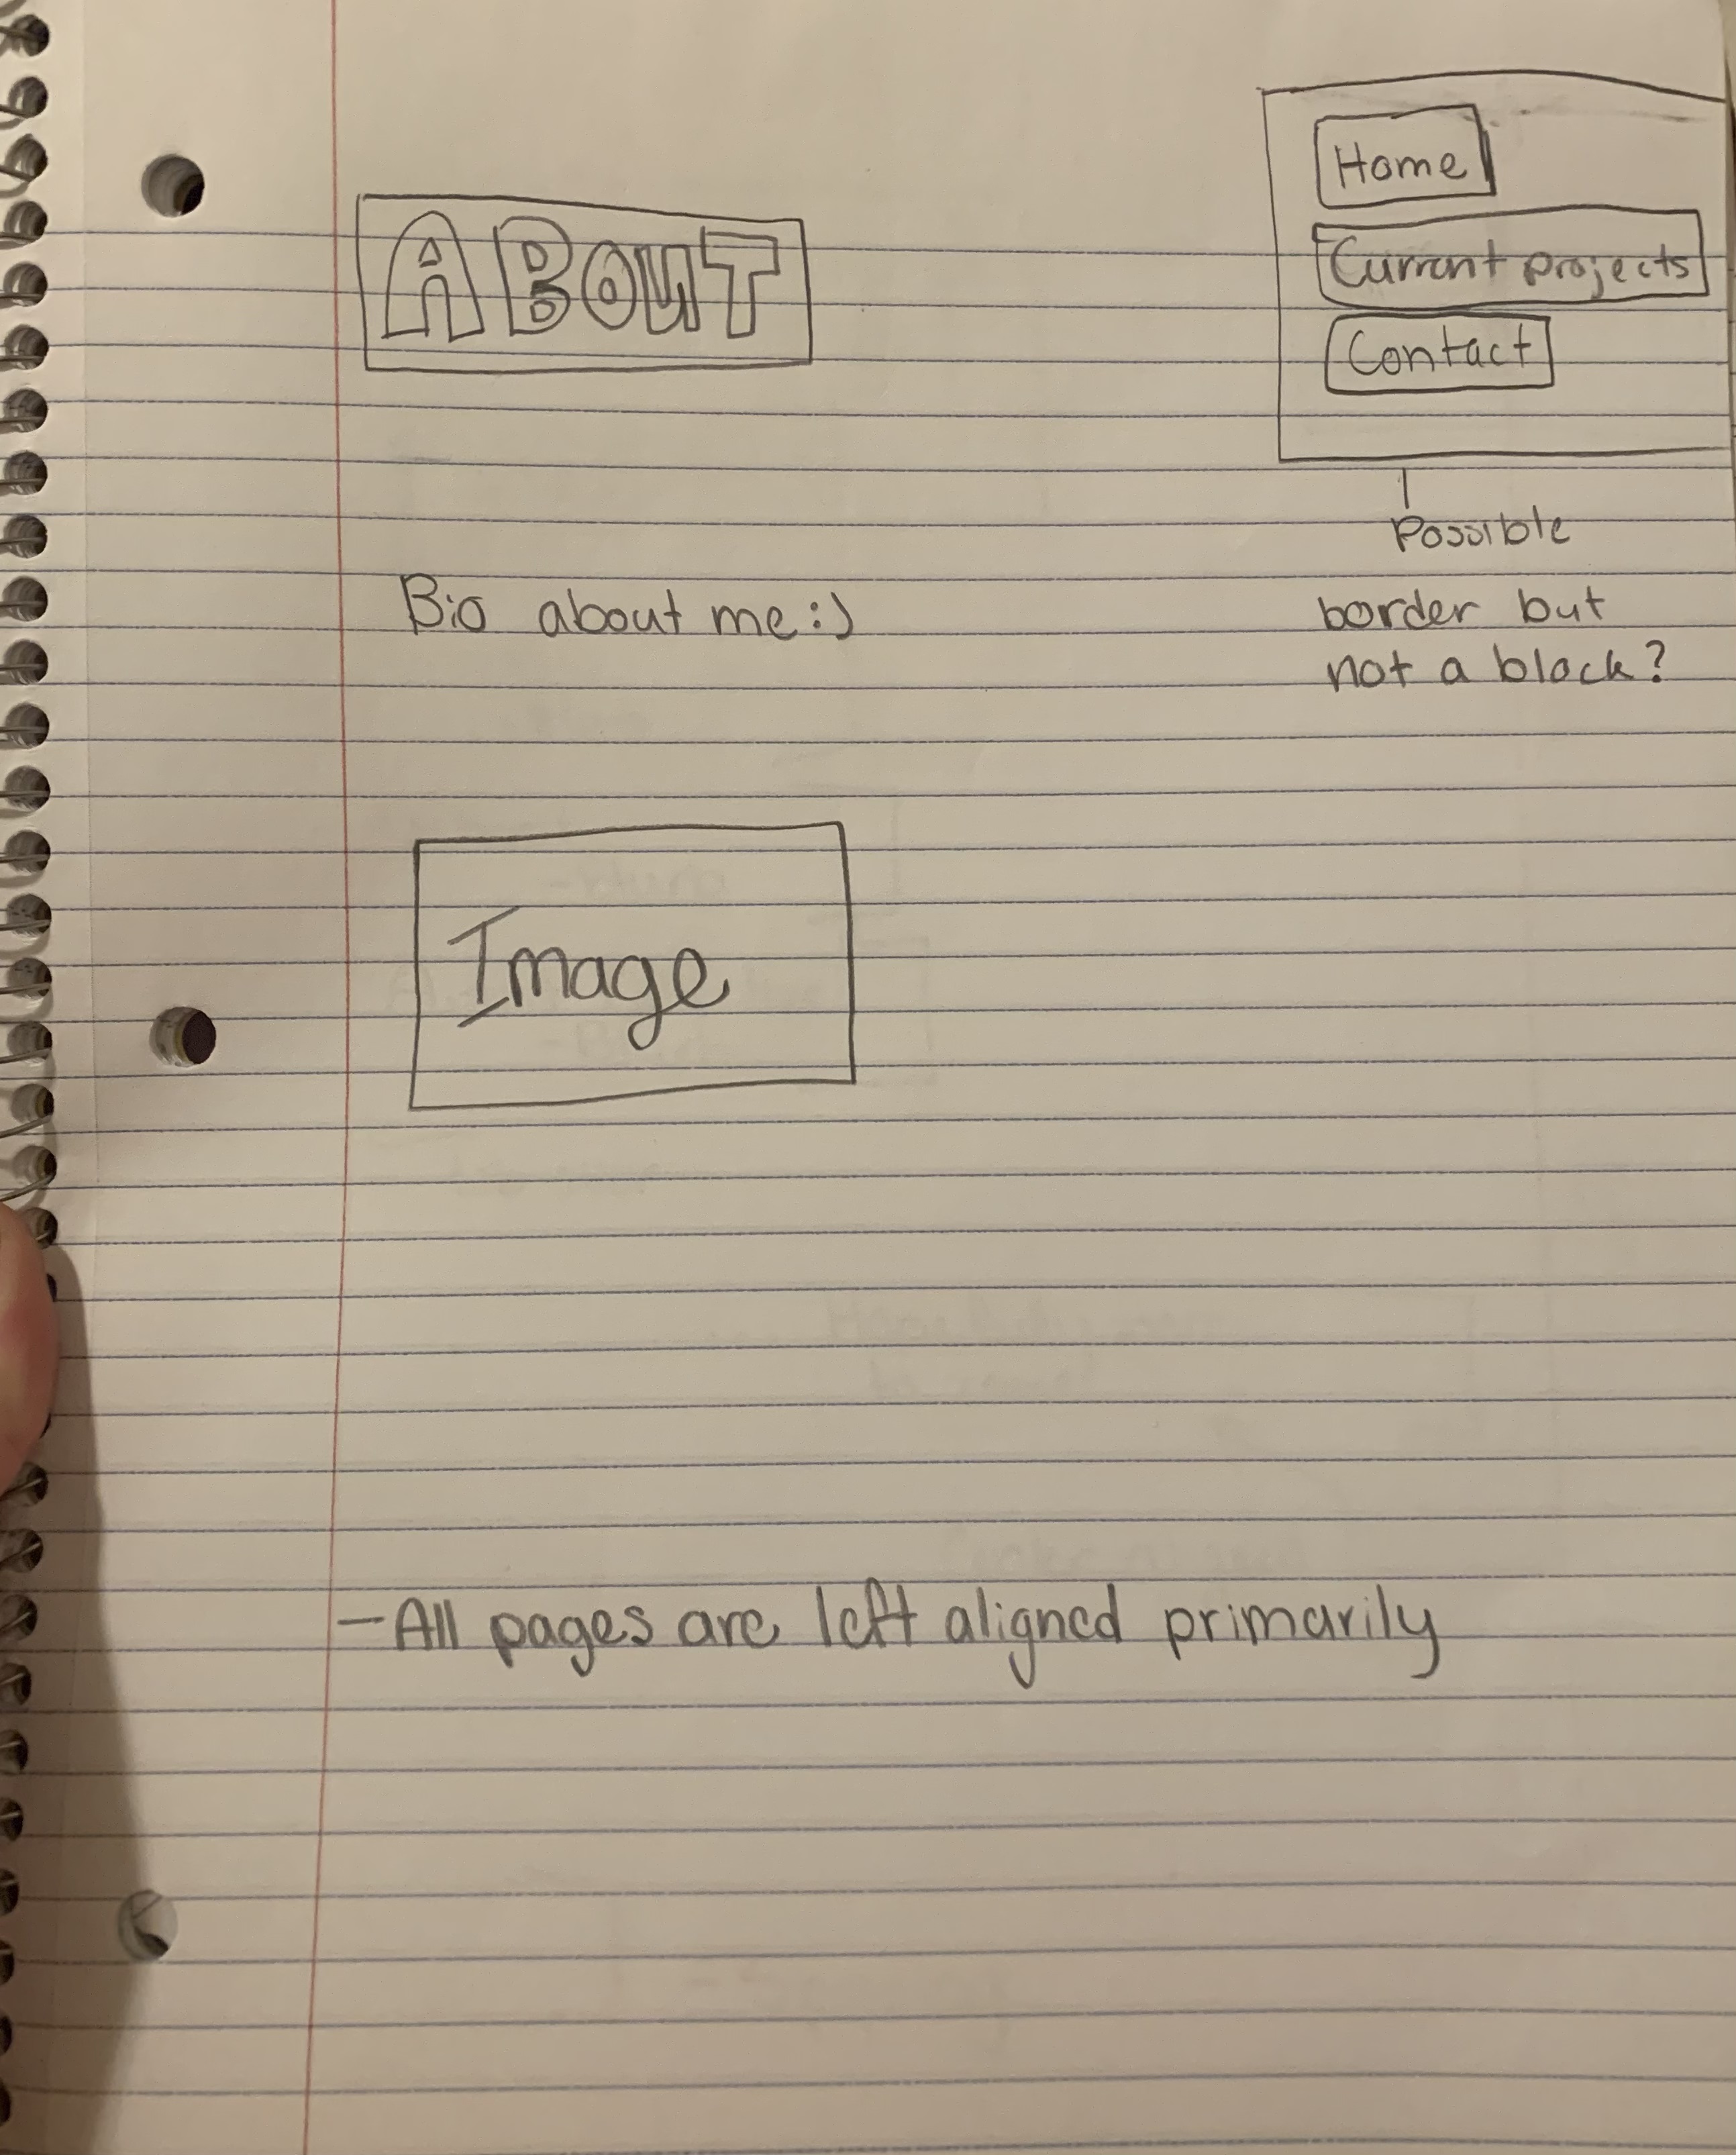 ABOUT
Home
Current projects
Contact
Possible
border but
not a block?
Bio about me:)
Image
- All pages are left aligned primarily